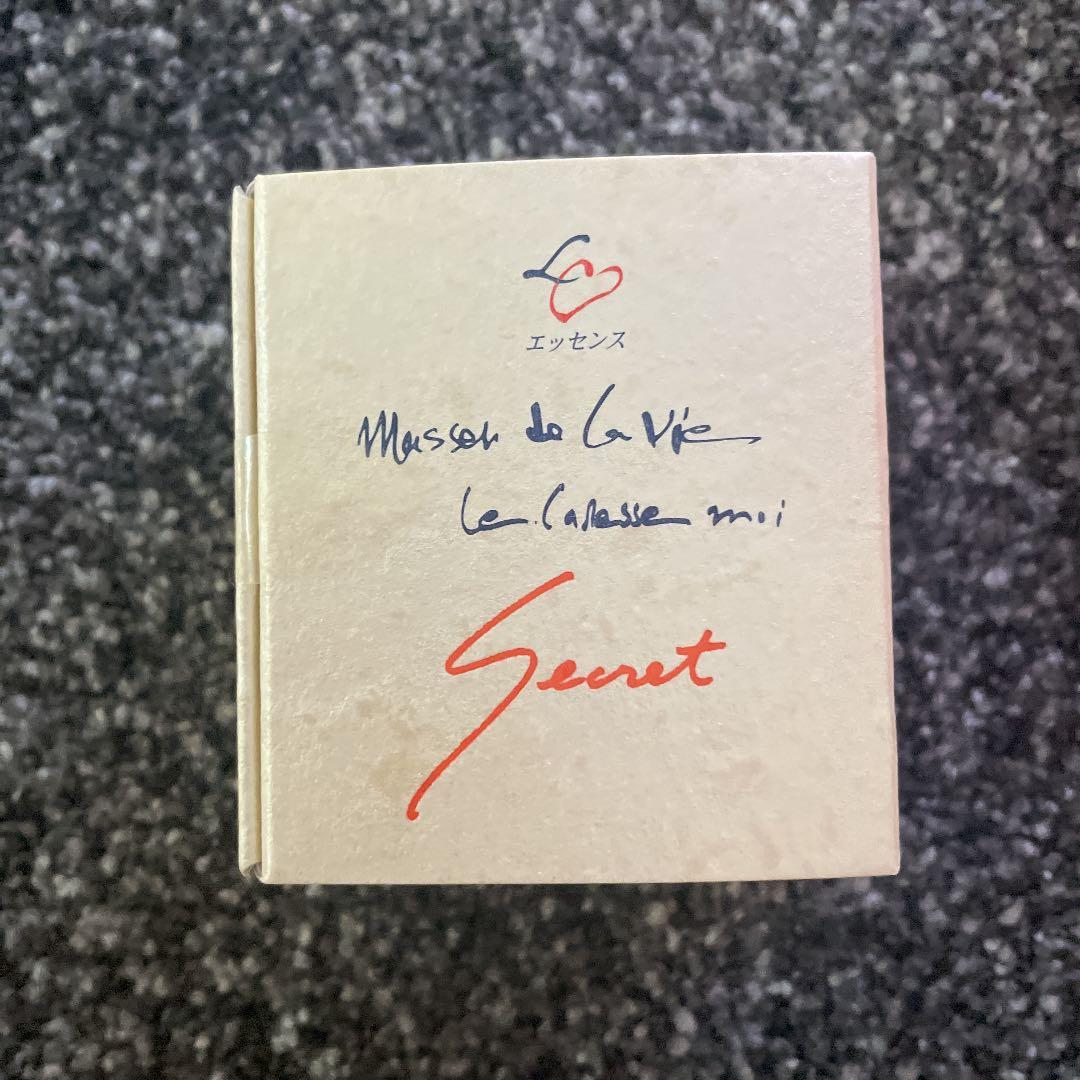 エッセンス
Masser de la Vie
Le. Caresse moi
Secret